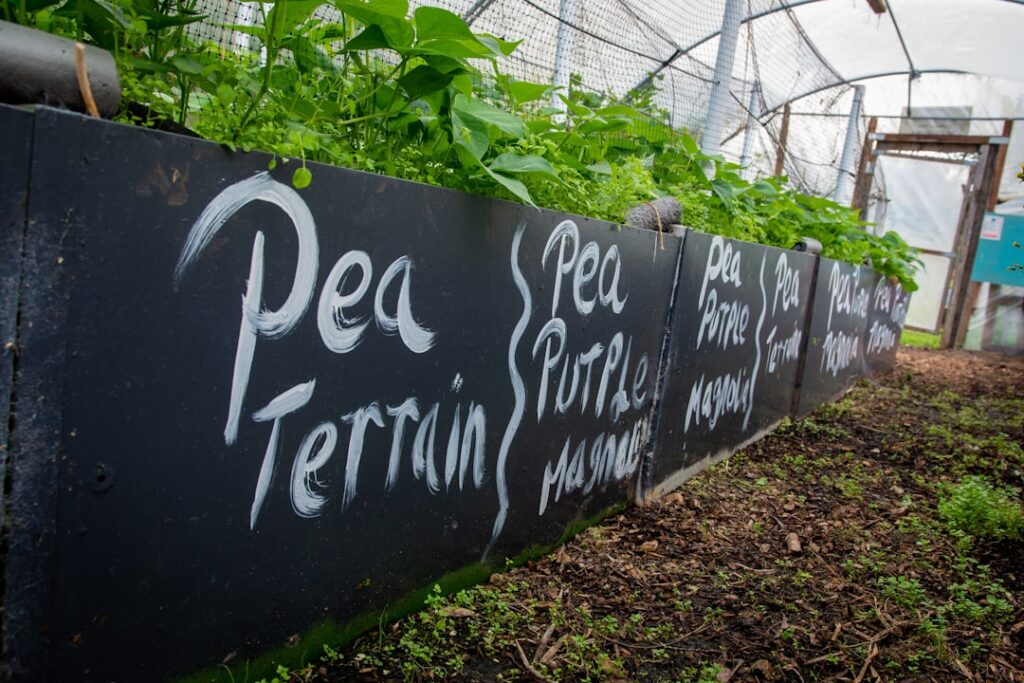 Pea
Terrain
Pea
Purple
Magnolia
Pea
Purple
Magnolia
Pea
Terrain
Pea
Pea